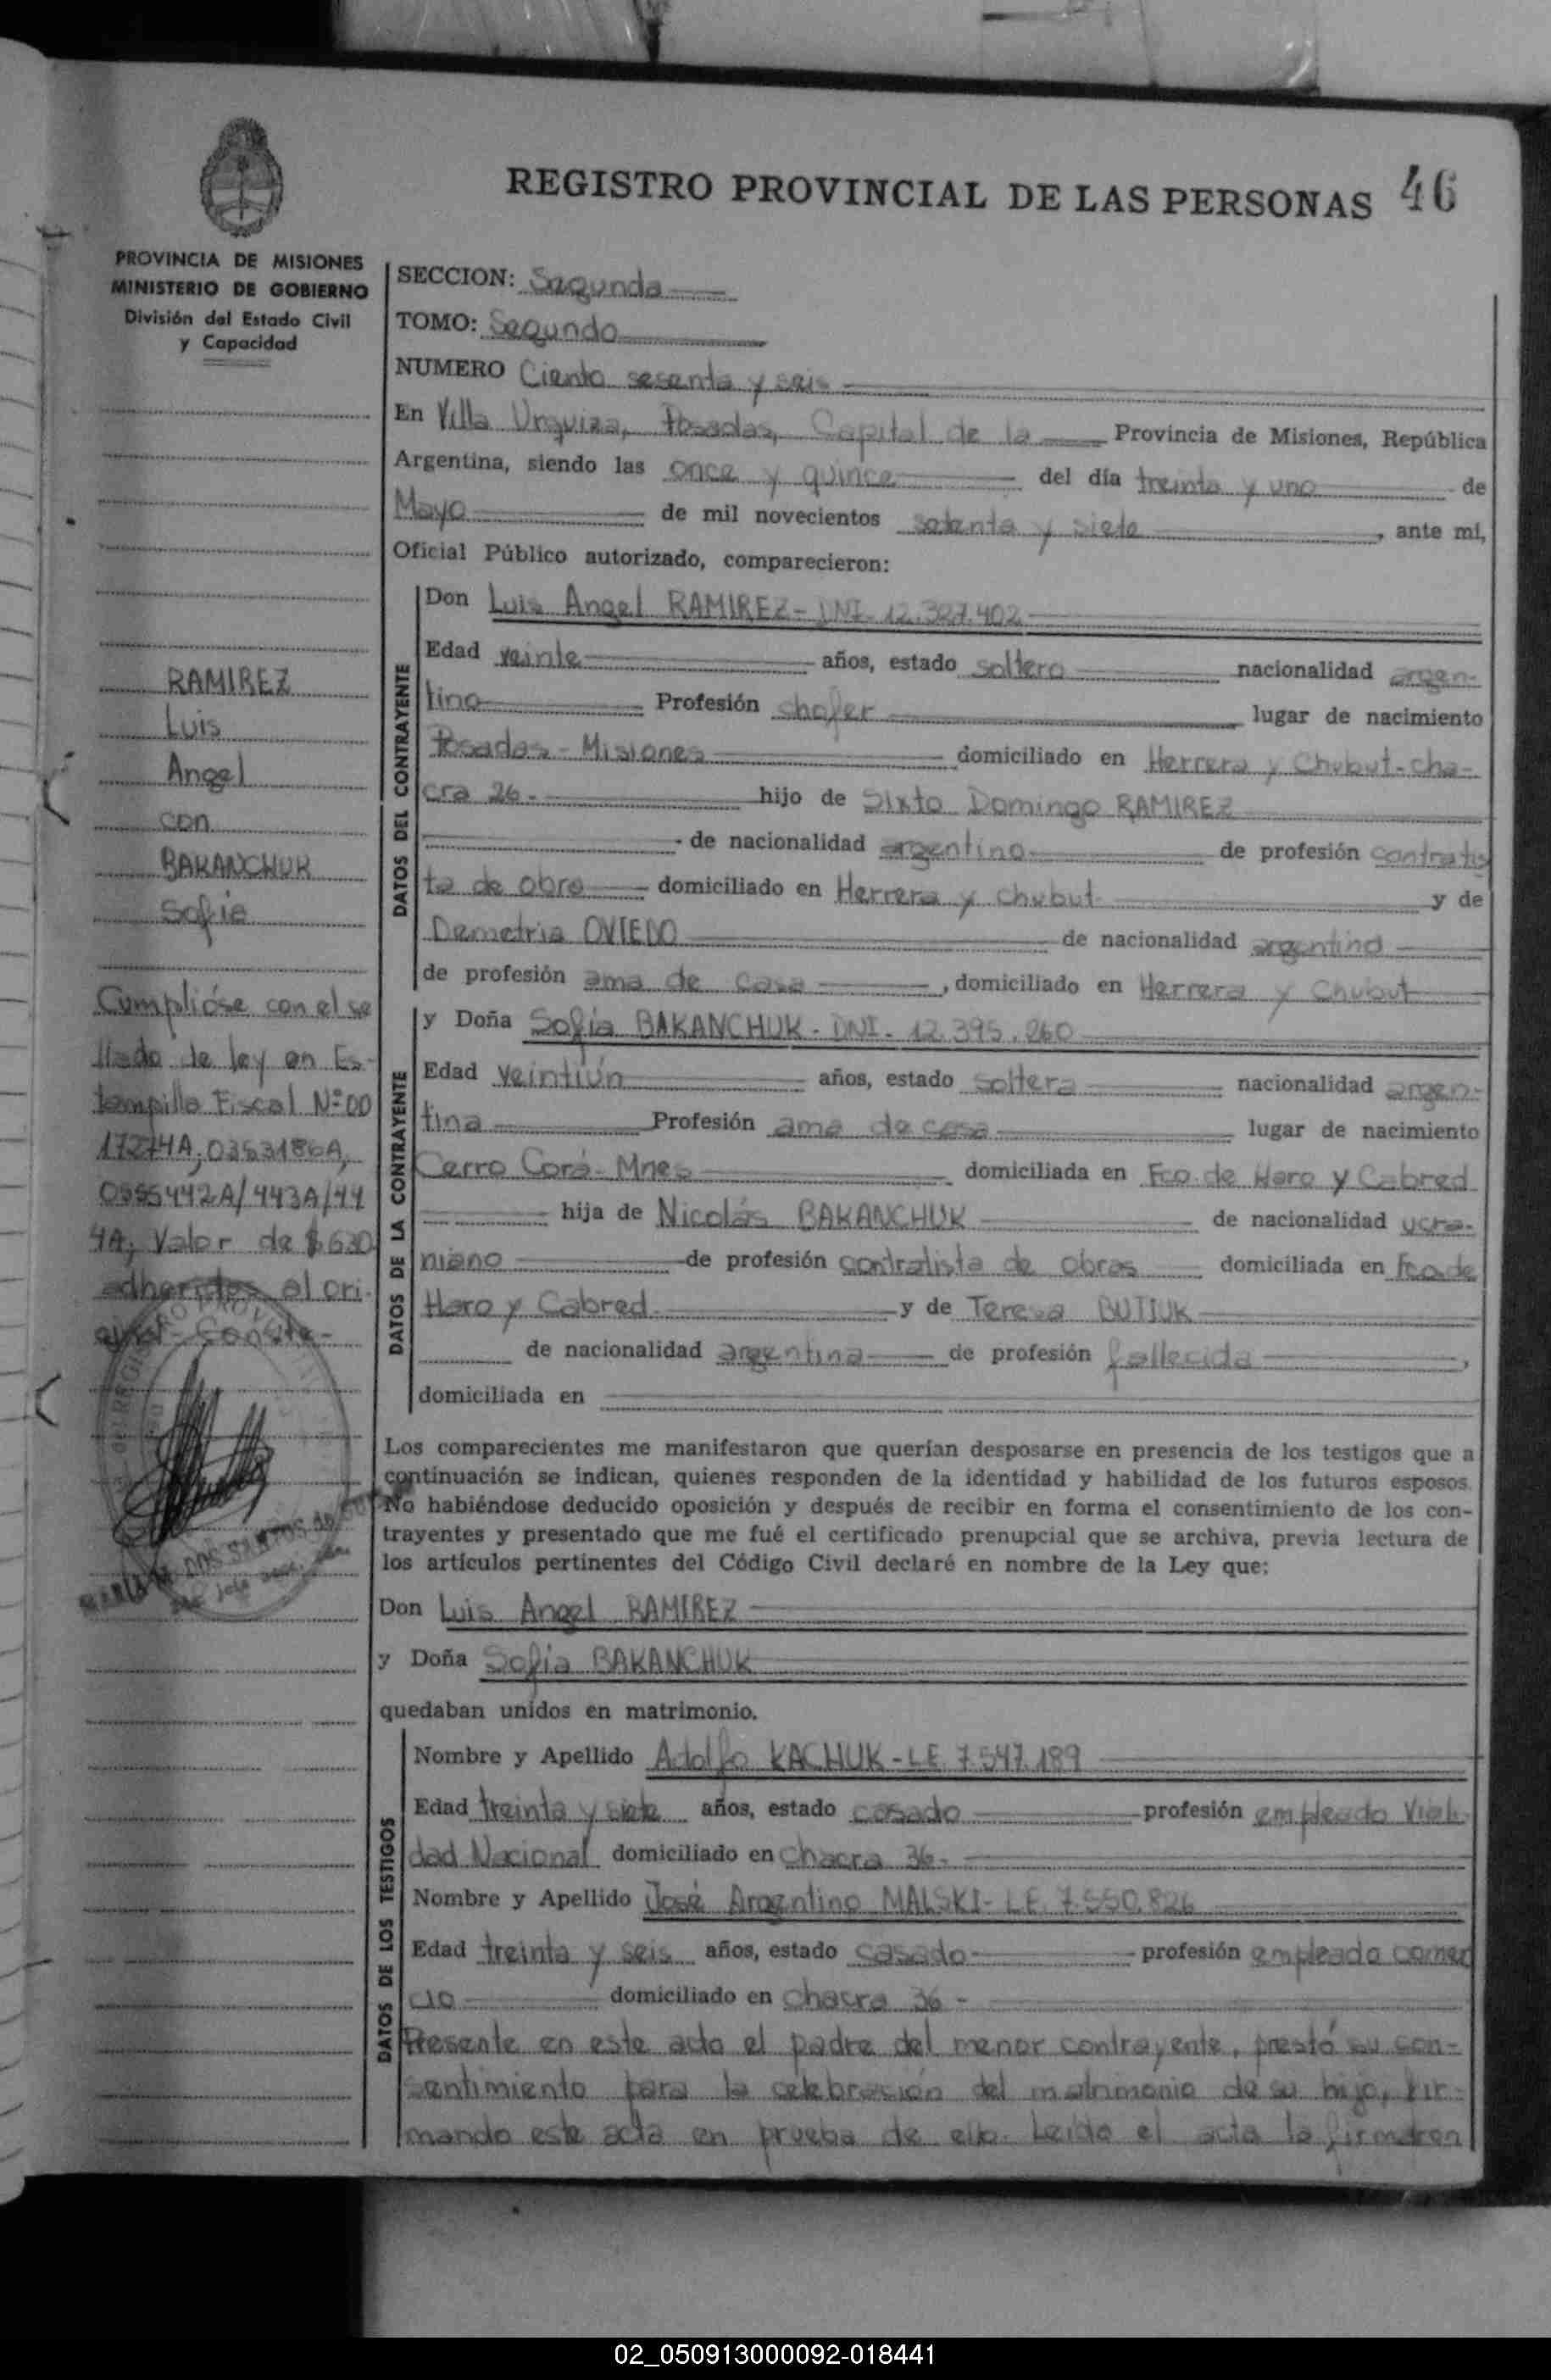 REGISTRO PROVINCIAL DE LAS PERSONAS 46
PROVINCIA DE MISIONES
MINISTERIO DE GOBIERNO
División del Estado Civil
y Capacidad
RAMIREZ
Luis
Angel
con
BAKANCHUK
Sofia
Cumplióse con el se
llado de ley en Es-
tampilla Fiscal Nº 00
17274A, 0353186A,
0555442A/443A/44
4A, Valor de $630
adheridos al ori-
ginal- Conste-
SECCION: Segunda
TOMO: Segundo
NUMERO Ciento sesenta y seis
En Villa Urquiza, Posadas, Capital de la Provincia de Misiones, República
Argentina, siendo las once y quince del día treinta y uno de
Mayo de mil novecientos setenta y siete, ante mi,
Oficial Público autorizado, comparecieron:
DATOS DEL CONTRAYENTE
Don Luis Angel RAMIREZ- DNI- 12.327.402
Edad veinte años, estado soltero nacionalidad argen-
tina Profesión chofer lugar de nacimiento
Posadas - Misiones domiciliado en Herrera y Chubut-cha-
cra 26- hijo de Sixto Domingo RAMIREZ
de nacionalidad argentina de profesión contratis
ta de obra domiciliado en Herrera y Chubut y de
Demetria OVIEDO de nacionalidad argentina
de profesión ama de casa, domiciliado en Herrera y Chubut
DATOS DE LA CONTRAYENTE
y Doña Sofia BAKANCHUK- DNI- 12.395.260
Edad veintiún años, estado soltera nacionalidad argen-
tina Profesión ama de casa lugar de nacimiento
Cerro Corá- Mnes domiciliada en Fco. de Haro y Cabred
hija de Nicolás BAKANCHUK de nacionalidad ucra-
niano de profesión contratista de obras domiciliada en Fco de
Haro y Cabred y de Teresa BUTIUK
de nacionalidad argentina de profesión fallecida,
domiciliada en
Los comparecientes me manifestaron que querían desposarse en presencia de los testigos que a
continuación se indican, quienes responden de la identidad y habilidad de los futuros esposos.
No habiéndose deducido oposición y después de recibir en forma el consentimiento de los con-
trayentes y presentado que me fué el certificado prenupcial que se archiva, previa lectura de
los artículos pertinentes del Código Civil declaré en nombre de la Ley que:
Don Luis Angel RAMIREZ
y Doña Sofia BAKANCHUK
quedaban unidos en matrimonio.
DATOS DE LOS TESTIGOS
Nombre y Apellido Adolfo KACHUK - LE. 7.547.189
Edad treinta y siete años, estado casado profesión empleado Viali-
dad Nacional domiciliado en chacra 36-
Nombre y Apellido José Argentino MALSKI- L.E. 7.550.826
Edad treinta y seis años, estado casado profesión empleado comer
cio domiciliado en chacra 36 -
Presente en este acto el padre del menor contrayente, prestó su con-
sentimiento para la celebración del matrimonio de su hijo, fir-
mando este acta en prueba de ello. Leído el acta la firmaron
02_050913000092-018441